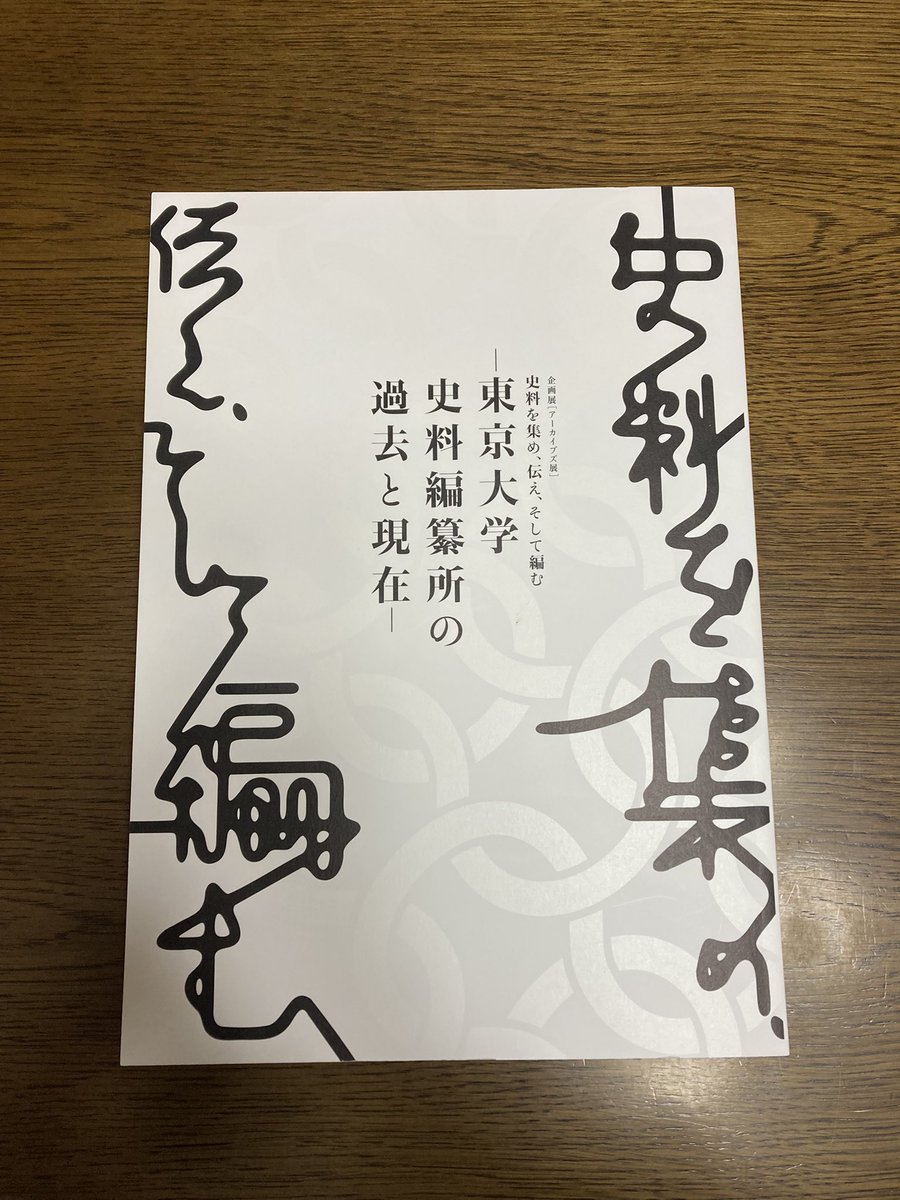 史料を集め、
企画展［アーカイブズ展］
史料を集め、伝え、そして編む
―東京大学
史料編纂所の
過去と現在―
伝え、そして編む